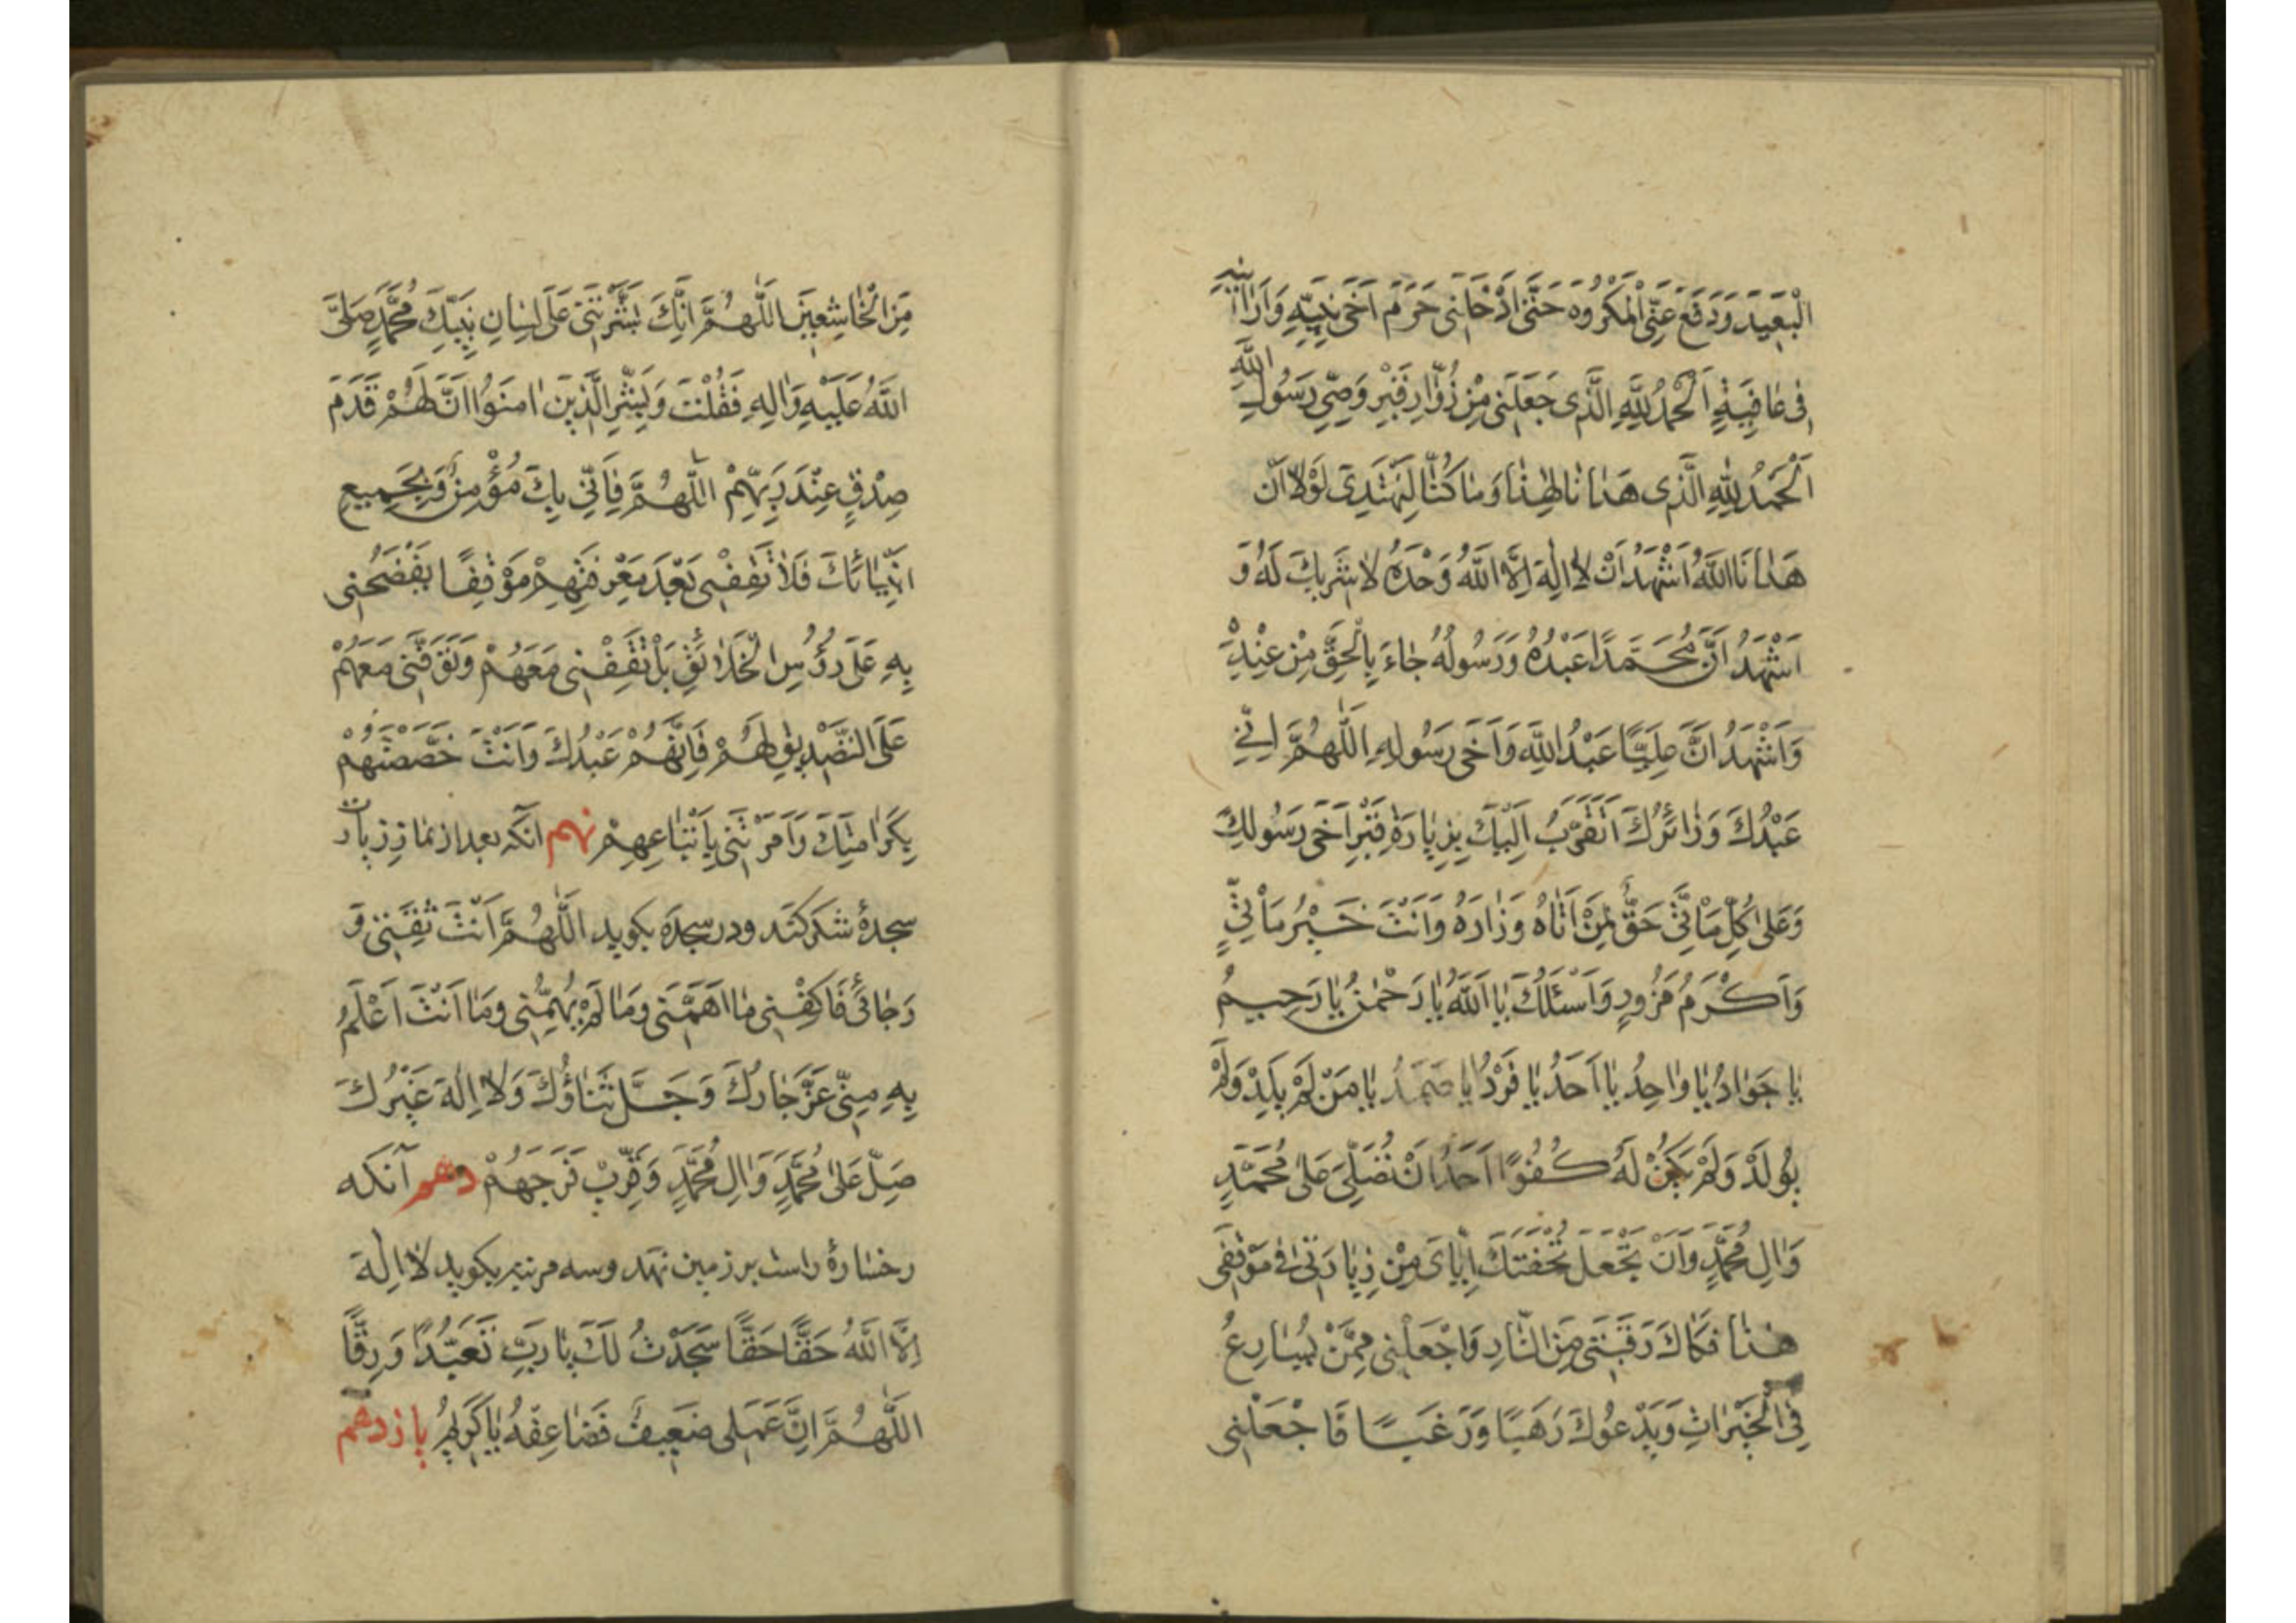 الْبَعِيدَ وَدَفَعَ عَنِّى الْمَكْرُوهَ حَتَّى اَدْخَلَنِى حَرَمَ اَخِى نَبِيِّهِ وَاَرَانِيهِ
فِى عَافِيَةٍ اَلْحَمْدُ لِلّٰهِ الَّذِى جَعَلَنِى مِنْ زُوَّارِ قَبْرِ وَصِىِّ رَسُولِ اللّٰهِ
اَلْحَمْدُ لِلّٰهِ الَّذِى هَدَانَا لِهٰذَا وَمَا كُنَّا لِنَهْتَدِىَ لَوْلَا اَنْ
هَدَانَا اللّٰهُ اَشْهَدُ اَنْ لَا اِلٰهَ اِلَّا اللّٰهُ وَحْدَهُ لَا شَرِيكَ لَهُ وَ
اَشْهَدُ اَنَّ مُحَمَّدًا عَبْدُهُ وَرَسُولُهُ جَاءَ بِالْحَقِّ مِنْ عِنْدِهِ
وَاَشْهَدُ اَنَّ عَلِيًّا عَبْدُ اللّٰهِ وَاَخِى رَسُولِهِ اَللّٰهُمَّ اِنِّى
عَبْدُكَ وَزَائِرُكَ اَتَقَرَّبُ اِلَيْكَ بِزِيَارَةِ قَبْرِ اَخِى رَسُولِكَ
وَعَلٰى كُلِّ مَاْتِىٍّ حَقٌّ لِمَنْ اَتَاهُ وَزَارَهُ وَاَنْتَ خَيْرُ مَاْتِىٍّ
وَاَكْرَمُ مَزُورٍ وَاَسْئَلُكَ يَا اَللّٰهُ يَا رَحْمٰنُ يَا رَحِيمُ
يَا جَوَادُ يَا وَاحِدُ يَا اَحَدُ يَا فَرْدُ يَا صَمَدُ يَا مَنْ لَمْ يَلِدْ وَلَمْ
يُولَدْ وَلَمْ يَكُنْ لَهُ كُفُوًا اَحَدٌ اَنْ تُصَلِّىَ عَلٰى مُحَمَّدٍ
وَاٰلِ مُحَمَّدٍ وَاَنْ تَجْعَلَ تُحْفَتَكَ اِيَّاىَ مِنْ زِيَارَتِى فِى مَوْقِفِى
هٰذَا فَكَاكَ رَقَبَتِى مِنَ النَّارِ وَاجْعَلْنِى مِمَّنْ يُسَارِعُ
فِى الْخَيْرَاتِ وَيَدْعُوكَ رَهَبًا وَرَغَبًا فَاجْعَلْنِى
مِنَ الْخَاشِعِينَ اَللّٰهُمَّ اِنَّكَ بَشَّرْتَنِى عَلٰى لِسَانِ نَبِيِّكَ مُحَمَّدٍ صَلَّى
اللّٰهُ عَلَيْهِ وَاٰلِهِ فَقُلْتَ وَبَشِّرِ الَّذِينَ اٰمَنُوا اَنَّ لَهُمْ قَدَمَ
صِدْقٍ عِنْدَ رَبِّهِمْ اَللّٰهُمَّ فَاِنِّى بِكَ مُؤْمِنٌ وَبِجَمِيعِ
اَنْبِيَائِكَ فَلَا تَقِفْنِى بَعْدَ مَعْرِفَتِهِمْ مَوْقِفًا تَفْضَحُنِى
بِهِ عَلٰى رُؤُسِ الْخَلَائِقِ بَلْ تَقِفْنِى مَعَهُمْ وَتَوَفَّنِى مَعَهُمْ
عَلَى التَّصْدِيقِ لَهُمْ فَاِنَّهُمْ عَبْدُكَ وَاَنْتَ خَصَّصْتَهُمْ
بِكَرَامَتِكَ وَاَمَرْتَنِى بِاَتِّبَاعِهِمْ نهم آنکه بعد از نماز زیارت
سجدهٔ شکر کند ودر سجده بکوید اَللّٰهُمَّ اَنْتَ ثِقَتِى وَ
رَجَائِى فَاكْفِنِى مَا اَهَمَّنِى وَمَا لَمْ يُهِمَّنِى وَمَا اَنْتَ اَعْلَمُ
بِهِ مِنِّى عَزَّ جَارُكَ وَجَلَّ ثَنَاؤُكَ وَلَا اِلٰهَ غَيْرُكَ
صَلِّ عَلٰى مُحَمَّدٍ وَاٰلِ مُحَمَّدٍ وَقَرِّبْ فَرَجَهُمْ دهم آنکه
رخسارهٔ راست بر زمین نهد وسه مرتبه بکوید لَا اِلٰهَ
اِلَّا اللّٰهُ حَقًّا حَقًّا سَجَدْتُ لَكَ يَا رَبِّ تَعَبُّدًا وَرِقًّا
اَللّٰهُمَّ اِنَّ عَمَلِى ضَعِيفٌ فَضَاعِفْهُ يَا كَرِيمُ یازدهم